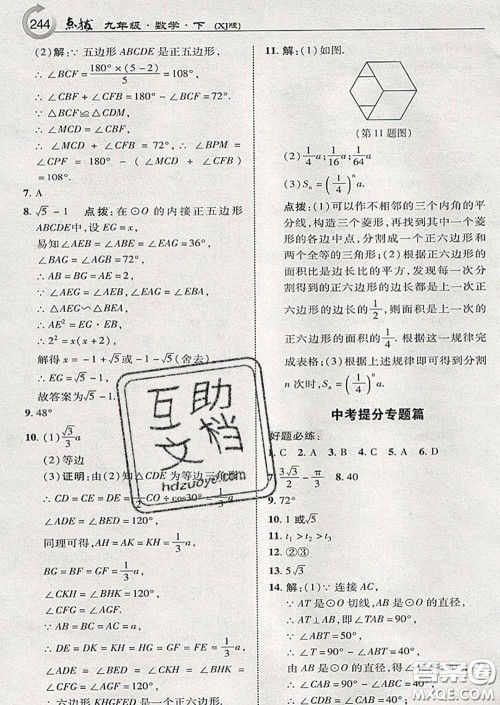 244 点拨 九年级·数学·下 (XJ版)
(2)解:∵五边形 ABCDE 是正五边形,
∴∠BCF=180°×(5-2)/5=108°,
∴∠CBF+∠CFB=180°-∠BCF=72°.
∵△BCF≌△CDM,
∴∠MCD=∠CBF,
∴∠MCD+∠CFB=72°,∴∠BPM=
∠CPF=180°-(∠MCD+∠CFB)=
108°.
7. A
8. √5-1 点拨:在⊙O的内接正五边形
ABCDE中,设EG=x,
易知∠AEB=∠ABE=∠EAG=36°,
∠BAG=∠AGB=72°,
∴AB=BG=AE=2,
∵∠AEG=∠AEB,∠EAG=∠EBA,
∴△AEG∽△BEA,
∴AE²=EG·EB,
∴2²=x(x+2),
解得x=-1+√5或-1-√5(舍去),
∴EG=√5-1.
故答案为√5-1.
9. 48°
10. (1)√3/3 a
(2)等边
(3)证明:由(2)知△CDE为等边三角形,
∴CD=CE=DE=
∠ADE=∠BED=120°,
同理可得,AH=AK=KH=1/3 a,
BG=BF=GF=1/3 a,
∠CKH=∠BGF=120°,
∵AB=BC=AC=a,
∴DE=DK=HK=HG=GF=FE=1/3 a,
∠ADE=∠BED=∠CKH=∠AHG=
∠BGF=∠CFG=120°,
∴六边形KHGFED是一个正六边形.
11. 解:(1)
(第11题图)
(2)1/4 a;1/16 a;1/64 a
(3)Sₙ=(1/4)ⁿ a.
点拨:(1)可以作不相邻的三个内角的平
分线,构造三个菱形,再取其中一个菱形
的各边中点,分割成一个正六边形和两
个全等的正三角形;(2)根据正六边形的
面积比是边长比的平方,发现每一次分
割得到的正六边形的边长都是上一个正
六边形的边长的1/2,即后一个面积是前一个
正六边形的面积的1/4,根据这一规律完
成表格;(3)根据上述规律即可得到分割
n次时,Sₙ=(1/4)ⁿ a.
中考提分专题篇
好题必练:
1. C 2. A 3. C 4. C 5. A 6. D
7. 3√3/2-π/3 8. 40
9. 72°
10. 1或√5
11. t₁>t₂>t₃
12. ②③
13. 5√3
14. 解:(1)∵连接AC,
∵AT是⊙O切线,AB是⊙O的直径,
∴AT⊥AB,即∠TAB=90°,
∵∠ABT=50°,
∴∠T=90°-∠ABT=40°,
由AB是⊙O的直径,得∠ACB=90°,
∴∠CAB=90°-∠ABC=40°,
∴∠CDB=∠CAB=40°.
互助
文档
hdzuoye.com
答案圈
MXQE.COM